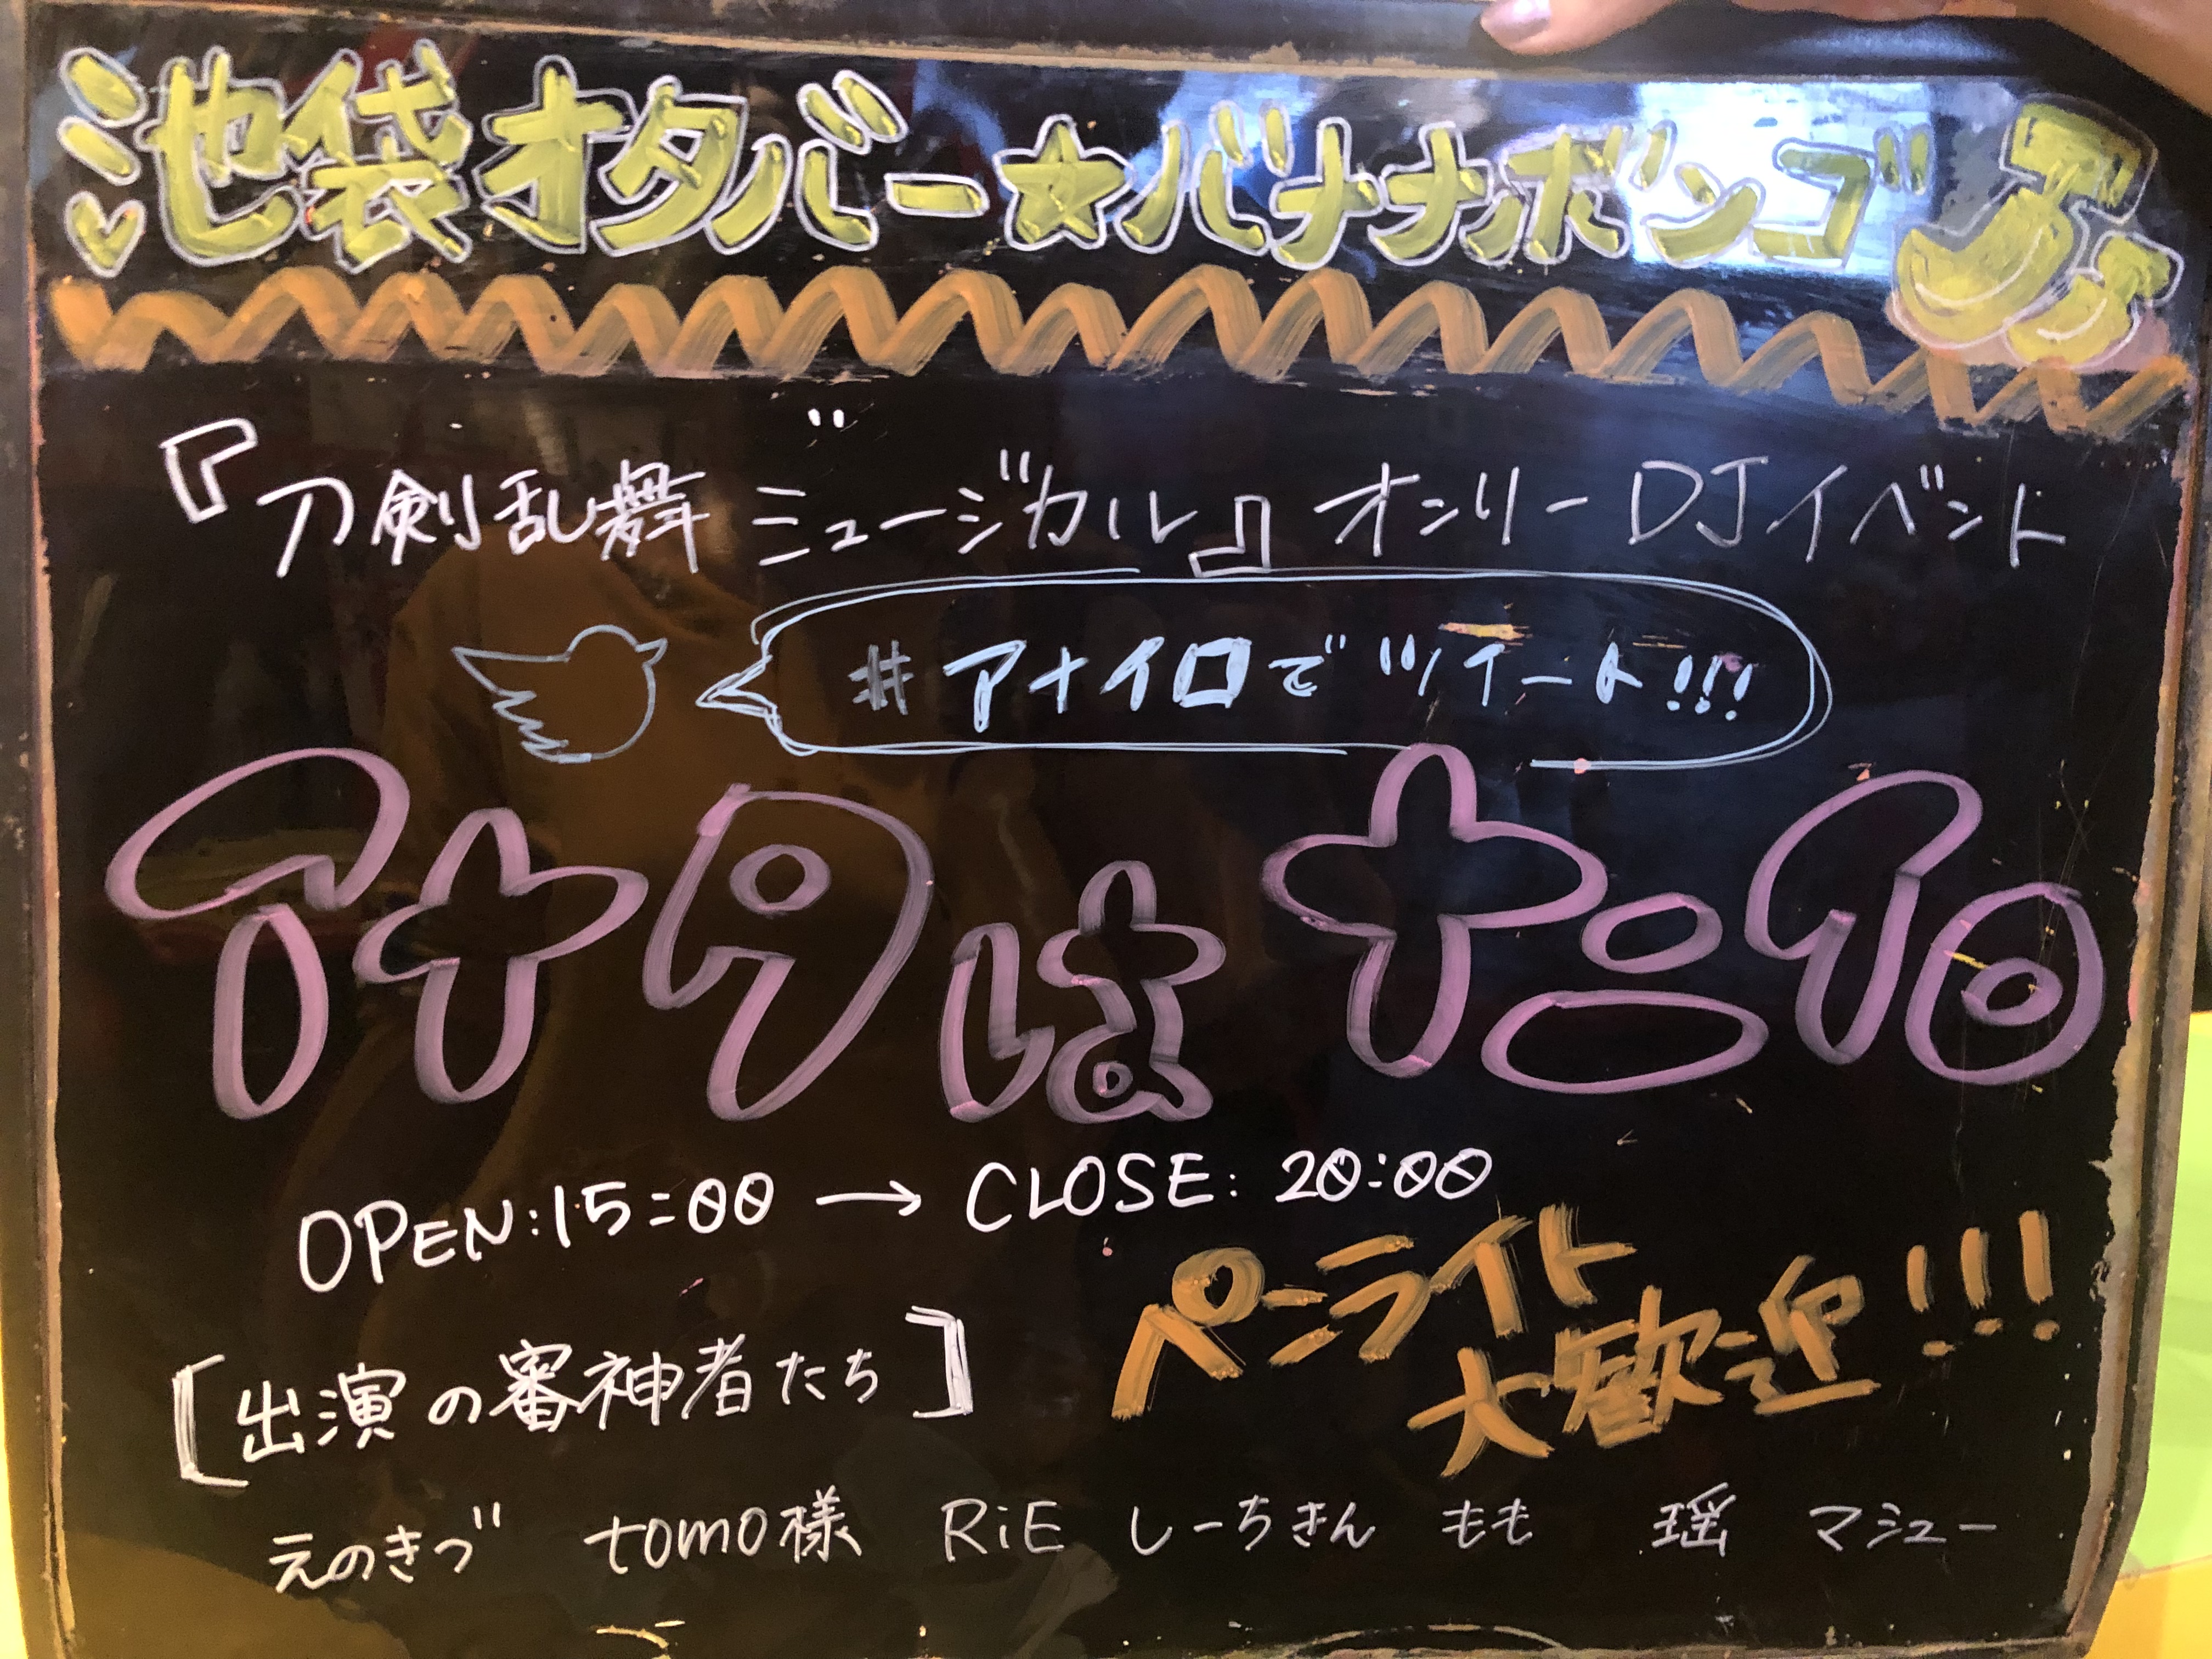 池袋オタバー☆バナナボンゴ
『刀剣乱舞ミュージカル』オンリーDJイベント
#アナイロでツイート!!!
アナタはナニイロ
OPEN:15:00 → CLOSE: 20:00
ペンライト
大歓迎!!!
[出演の審神者たち]
えのきづ tomo様 RiE しーちきん もも 瑶 マシュー